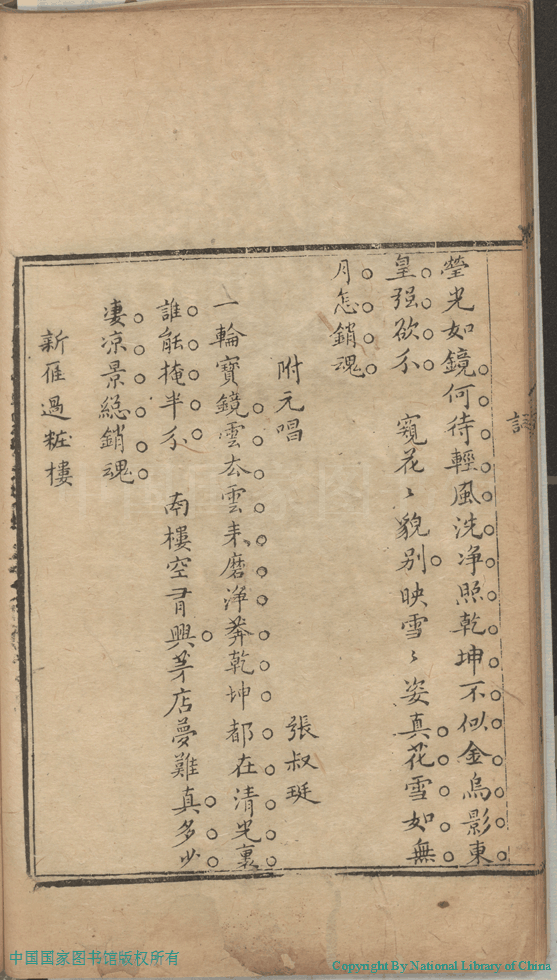 詞
瑩光如鏡何待輕風洗净照乾坤不似金烏影東
皇强欲分　窺花〻貌别映雪〻姿真花雪如無
月怎銷魂
附元唱　張叔珽
一輪寶鏡雲去雲来磨浄莾乾坤都在清光裏
誰能掩半分　南樓空有興茅店夢難真多少
凄凉景緫銷魂
新雁過粧樓
中国国家图书馆版权所有
Copyright By National Library of China